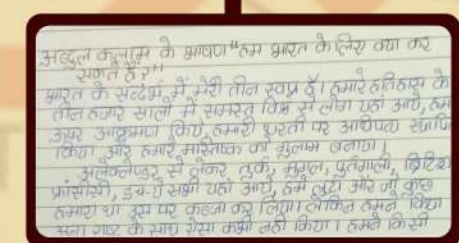 अब्दुल कलाम के भाषण "हम भारत के लिए क्या कर
सकते हैं?"
भारत के सन्दर्भ में मेरी तीन स्वप्न हैं। हमारे इतिहास के
तीन हजार सालों में समस्त विश्व से लोग यहाँ आये, हम
ऊपर आक्रमण किये, हमारी धरती पर आधिपत्य स्थापित
किया और हमारे मस्तिष्क को गुलाम बनाया।
अलेक्जेण्डर से लेकर तुर्क, मुगल, पुर्तगाली, ब्रिटिश
फ्रांसीसी, डच-ये सभी यहाँ आये, हमें लूटा और जो कुछ
हमारा था उस पर कब्जा कर लिया। लेकिन हमने किया
अन्य राष्ट्र के साथ ऐसा कभी नहीं किया। हमने किसी